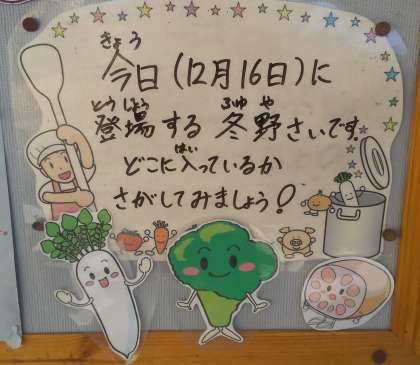 きょう
今日(12月16日)に
とうじょう ふゆ や
登場する 冬野さいです。
はい
どこに入っているか
さがしてみましょう!